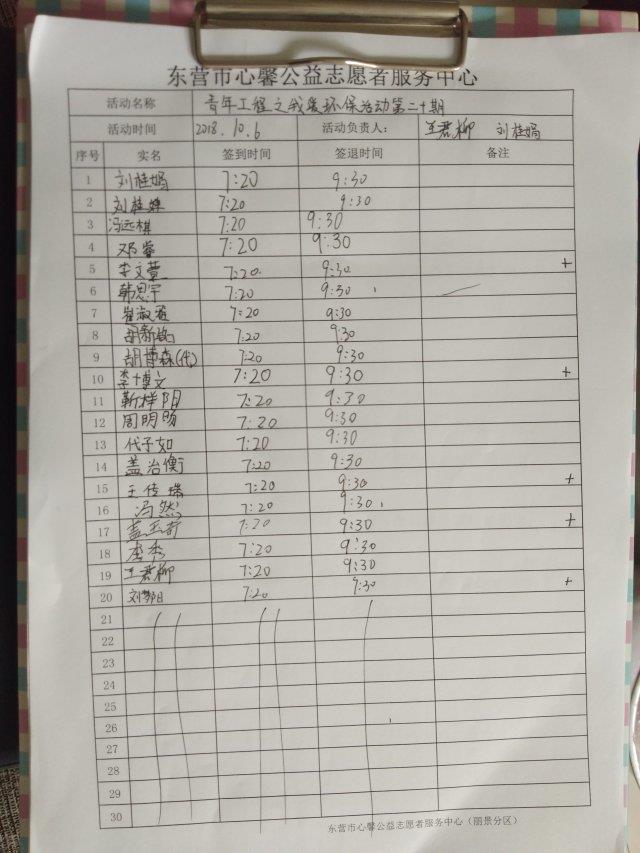 东营市心馨公益志愿者服务中心
活动名称 青年工程之我爱环保活动第二十期
活动时间 2018.10.6 活动负责人: 王君柳 刘桂娟
序号 实名 签到时间 签退时间 备注
1 刘桂娟 7:20 9:30
2 刘桂婵 7:20 9:30
3 冯远棋 7:20 9:30
4 邓睿 7:20 9:30
5 李文萱 7:20 9:30 +
6 韩思宇 7:20 9:30
7 崔淑涵 7:20 9:30
8 胡新铭 7:20 9:30
9 胡博森(代) 7:20 9:30
10 李博文 7:20 9:30 +
11 靳梓阳 7:20 9:30
12 周明旸 7:20 9:30
13 代子如 7:20 9:30
14 盖治衡 7:20 9:30
15 王传瑞 7:20 9:30 +
16 冯然 7:20 9:30
17 盖玉 7:20 9:30 +
18 李秀 7:20 9:30
19 王君柳 7:20 9:30
20 刘 7:20 9:30 +
21
22
23
24
25
26
27
28
29
30
东营市心馨公益志愿者服务中心（丽景分区）